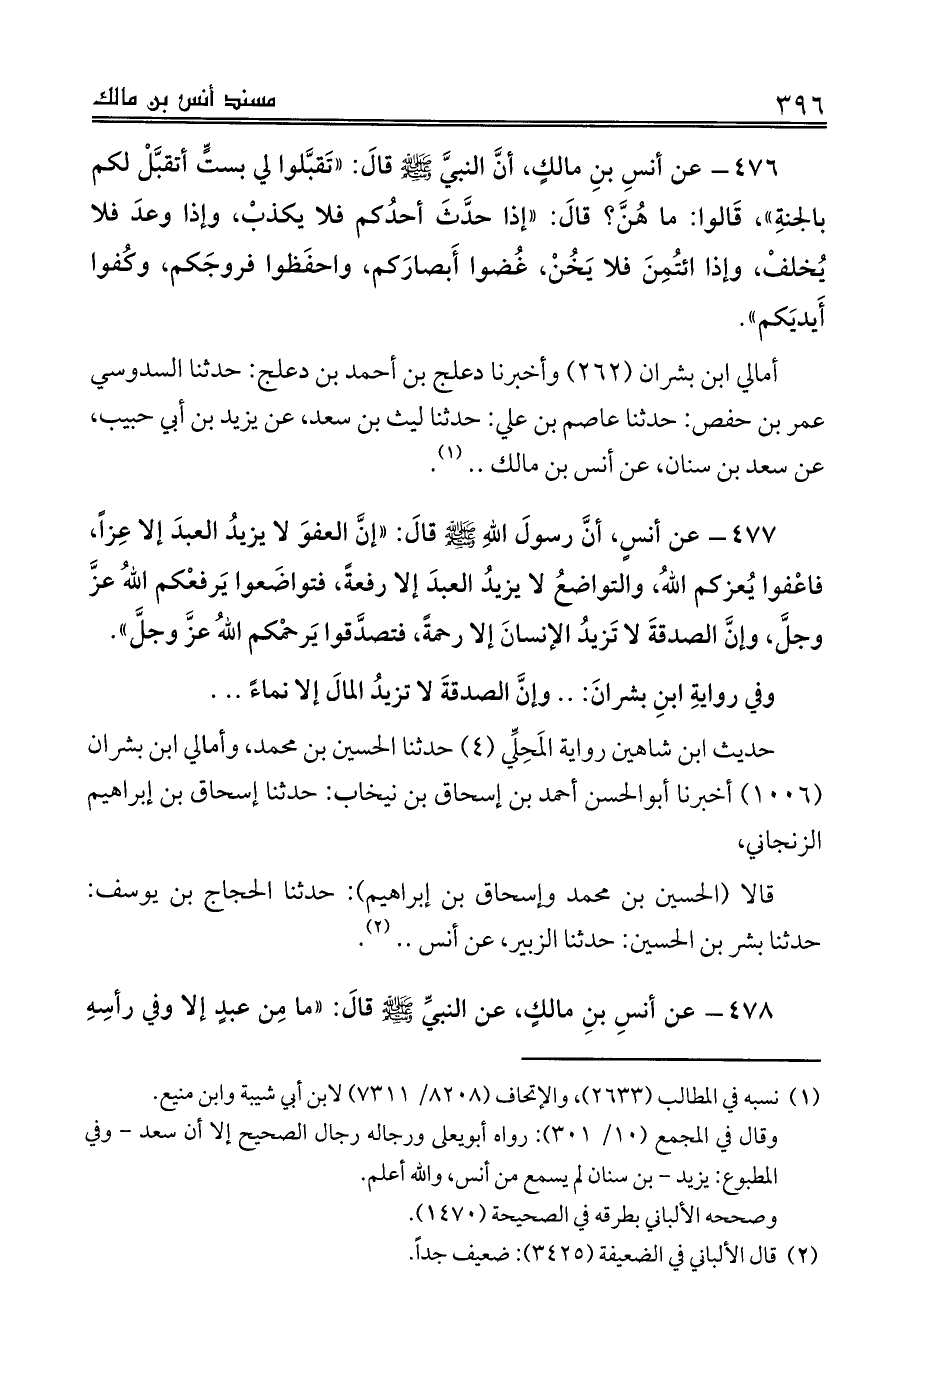 ٣٩٦ مسند أنس بن مالك
٤٧٦ – عن أنسِ بنِ مالكٍ، أنَّ النبيَّ ﷺ قالَ: «تَقبَّلوا لي بستٍّ أتقبَّلْ لكم
بالجنةِ»، قَالوا: ما هُنَّ؟ قالَ: «إذا حدَّثَ أحدُكم فلا يكذبْ، وإذا وعدَ فلا
يُخلفْ، وإذا ائتُمِنَ فلا يَخُنْ، غُضوا أَبصارَكم، واحفَظوا فروجَكم، وكُفوا
أَيديَكم».
أمالي ابن بشران (٢٦٢) وأخبرنا دعلج بن أحمد بن دعلج: حدثنا السدوسي
عمر بن حفص: حدثنا عاصم بن علي: حدثنا ليث بن سعد، عن يزيد بن أبي حبيب،
عن سعد بن سنان، عن أنس بن مالك .. (١).
٤٧٧ – عن أنسٍ، أنَّ رسولَ اللهِ ﷺ قالَ: «إنَّ العفوَ لا يزيدُ العبدَ إلا عِزاً،
فاعْفوا يُعزكم اللهُ، والتواضعُ لا يزيدُ العبدَ إلا رفعةً، فتواضَعوا يَرفعْكم اللهُ عزَّ
وجلَّ، وإنَّ الصدقةَ لا تَزيدُ الإنسانَ إلا رحمةً، فتصدَّقوا يَرحمْكم اللهُ عزَّ وجلَّ».
وفي روايةِ ابنِ بشرانَ: .. وإنَّ الصدقةَ لا تزيدُ المالَ إلا نماءً ...
حديث ابن شاهين رواية المَحِلِّي (٤) حدثنا الحسين بن محمد، وأمالي ابن بشران
(١٠٠٦) أخبرنا أبوالحسن أحمد بن إسحاق بن نيخاب: حدثنا إسحاق بن إبراهيم
الزنجاني،
قالا (الحسين بن محمد وإسحاق بن إبراهيم): حدثنا الحجاج بن يوسف:
حدثنا بشر بن الحسين: حدثنا الزبير، عن أنس .. (٢).
٤٧٨ – عن أنسِ بنِ مالكٍ، عن النبيِّ ﷺ قالَ: «ما مِن عبدٍ إلا وفي رأسِهِ
(١) نسبه في المطالب (٢٦٣٣)، والإتحاف (٨٢٠٨/ ٧٣١١) لابن أبي شيبة وابن منيع.
وقال في المجمع (١٠/ ٣٠١): رواه أبويعلى ورجاله رجال الصحيح إلا أن سعد – وفي
المطبوع: يزيد – بن سنان لم يسمع من أنس، والله أعلم.
وصححه الألباني بطرقه في الصحيحة (١٤٧٠).
(٢) قال الألباني في الضعيفة (٣٤٢٥): ضعيف جداً.